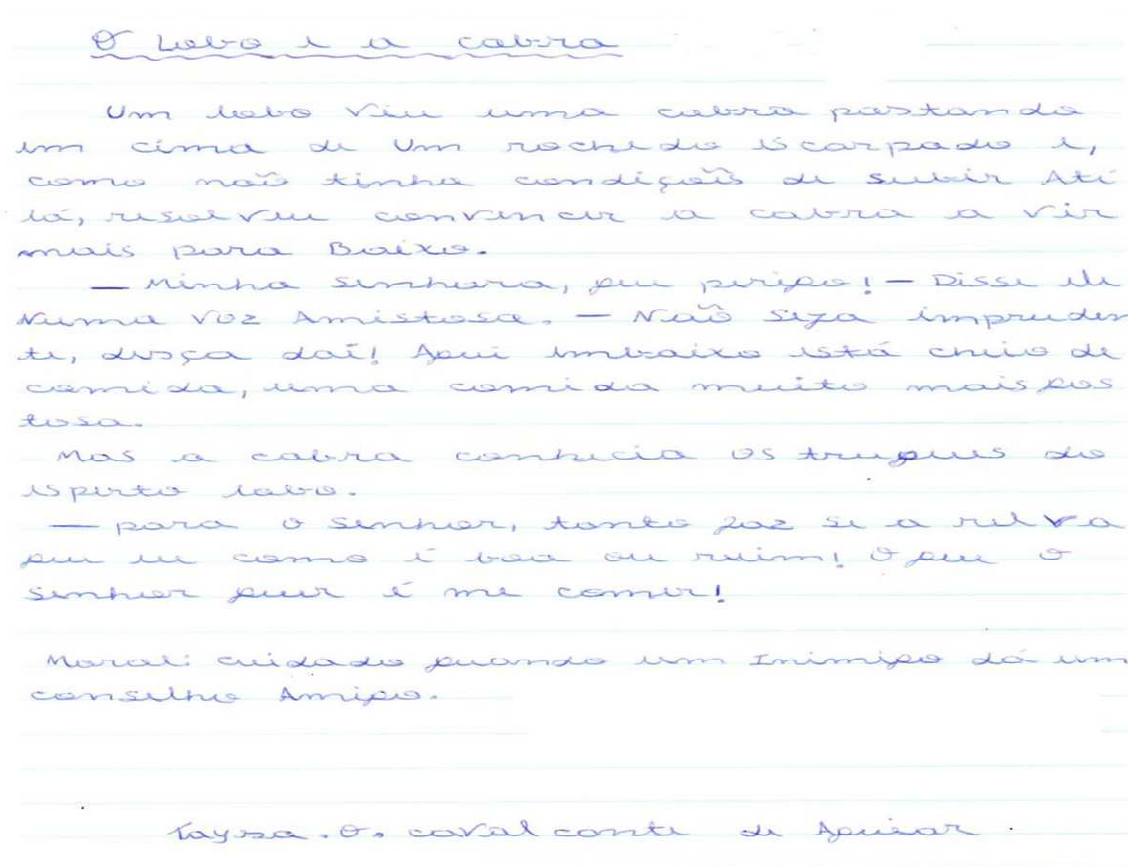 O Lobo e a cabra
Um lobo viu uma cabra pastando
em cima de Um rochedo escarpado e,
como não tinha condições de subir Até
lá, resolveu convencer a cabra a vir
mais para Baixo.
— Minha senhora, que perigo! — Disse ele
Numa voz Amistosa. — Não seja impruden
te, desça daí! Aqui embaixo está cheio de
comida, uma comida muito mais gos
tosa.
Mas a cabra conhecia os truques do
esperto lobo.
— para o senhor, tanto faz se a relva
que eu como é boa ou ruim! O que o
senhor quer é me comer!
Moral: cuidado quando um Inimigo dá um
conselho Amigo.
Taysa. O. cavalconte de Aguiar